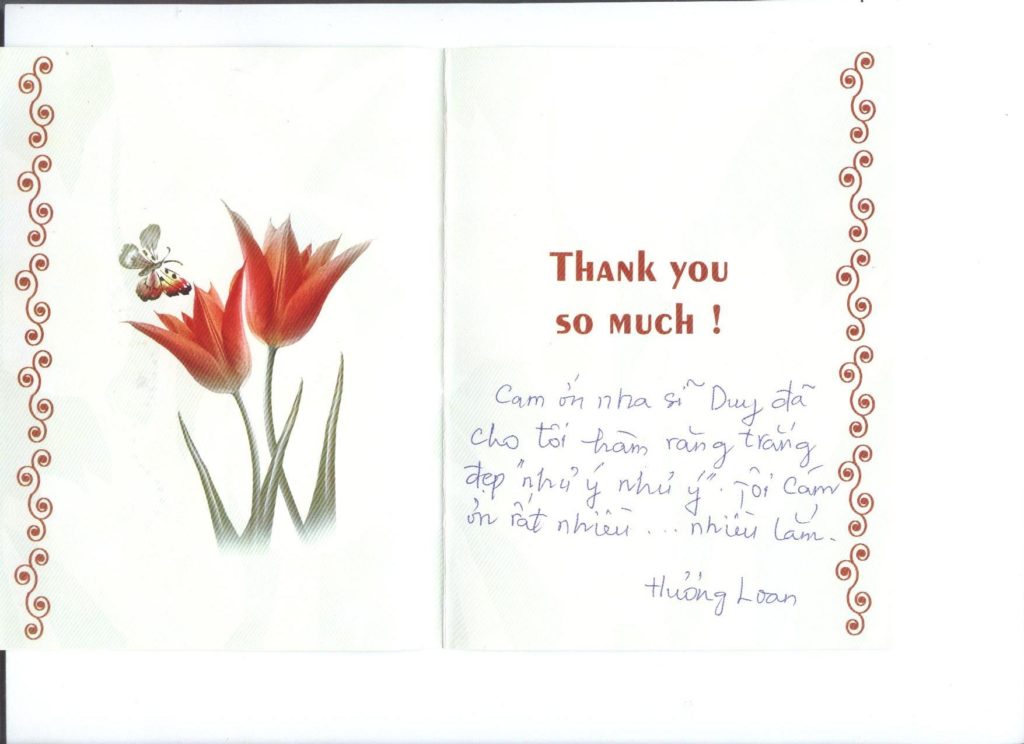 THANK YOU
SO MUCH !
Cám ơn nha sĩ Duy đã
cho tôi hàm răng trắng
đẹp "như ý như ý". Tôi cám
ơn rất nhiều ... nhiều lắm.
Hương Loan